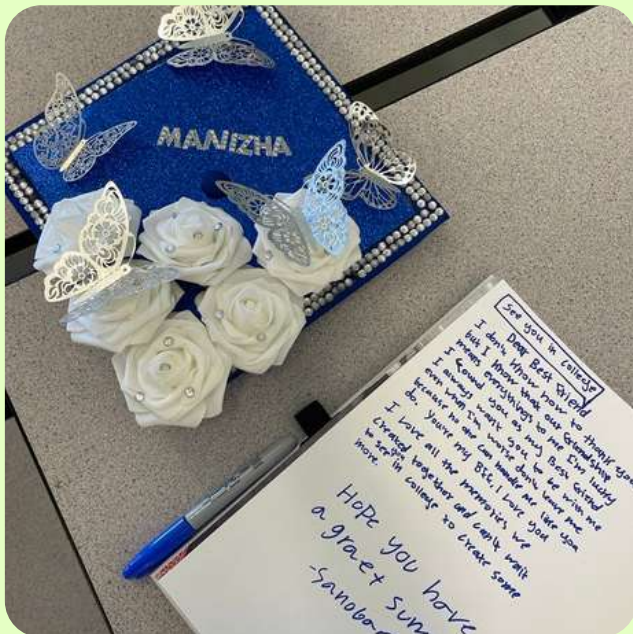 MANIZHA
See you in college
Dear Best Friend
I don't know how to thank you
but I know that our friendship
means everything to me I'm lucky
I found you as my best friend
I always want you to be with me
even when I'm worse don't leave me
because no one can handle me like you
do, you're my Bit. I love you
I love all the memories we
created together and can't wait
to see in college to create some
more.
Hope you have
a graet sum
-Sanoba